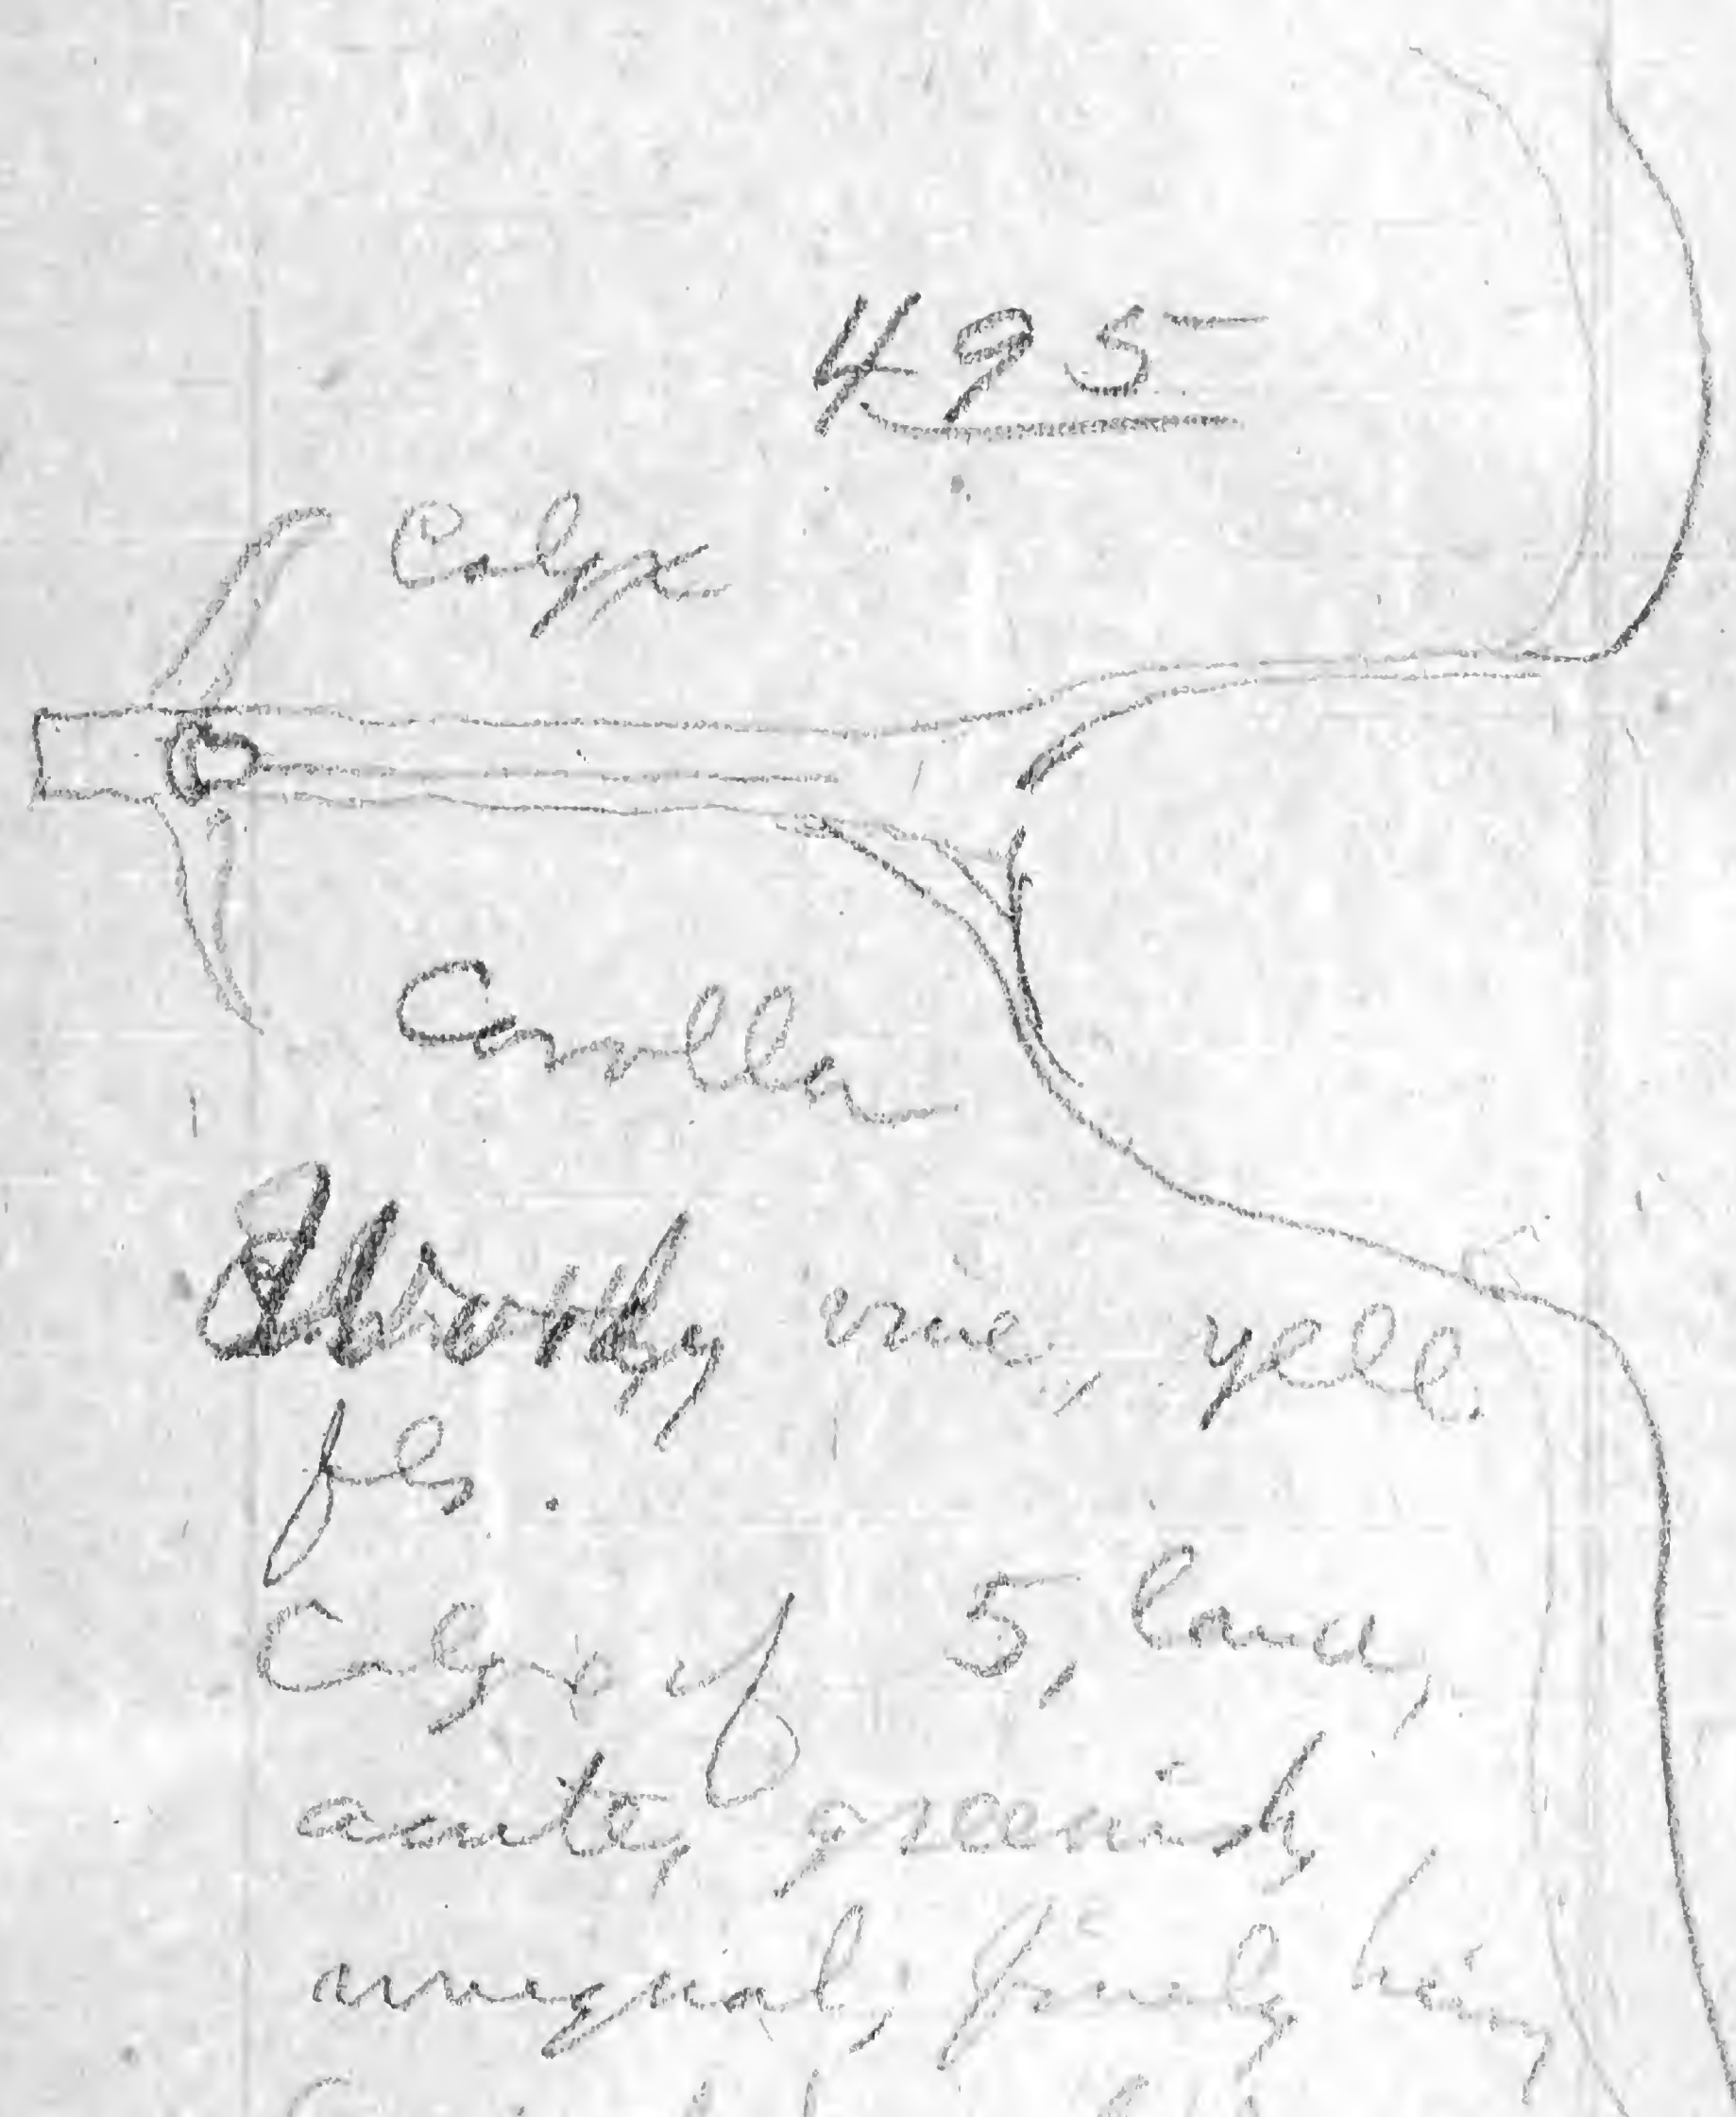 495
Calyx
Corolla
Woody vine, yell.
fls.
Calyx of 5, lance,
acute, greenish
unequal, finely hairy